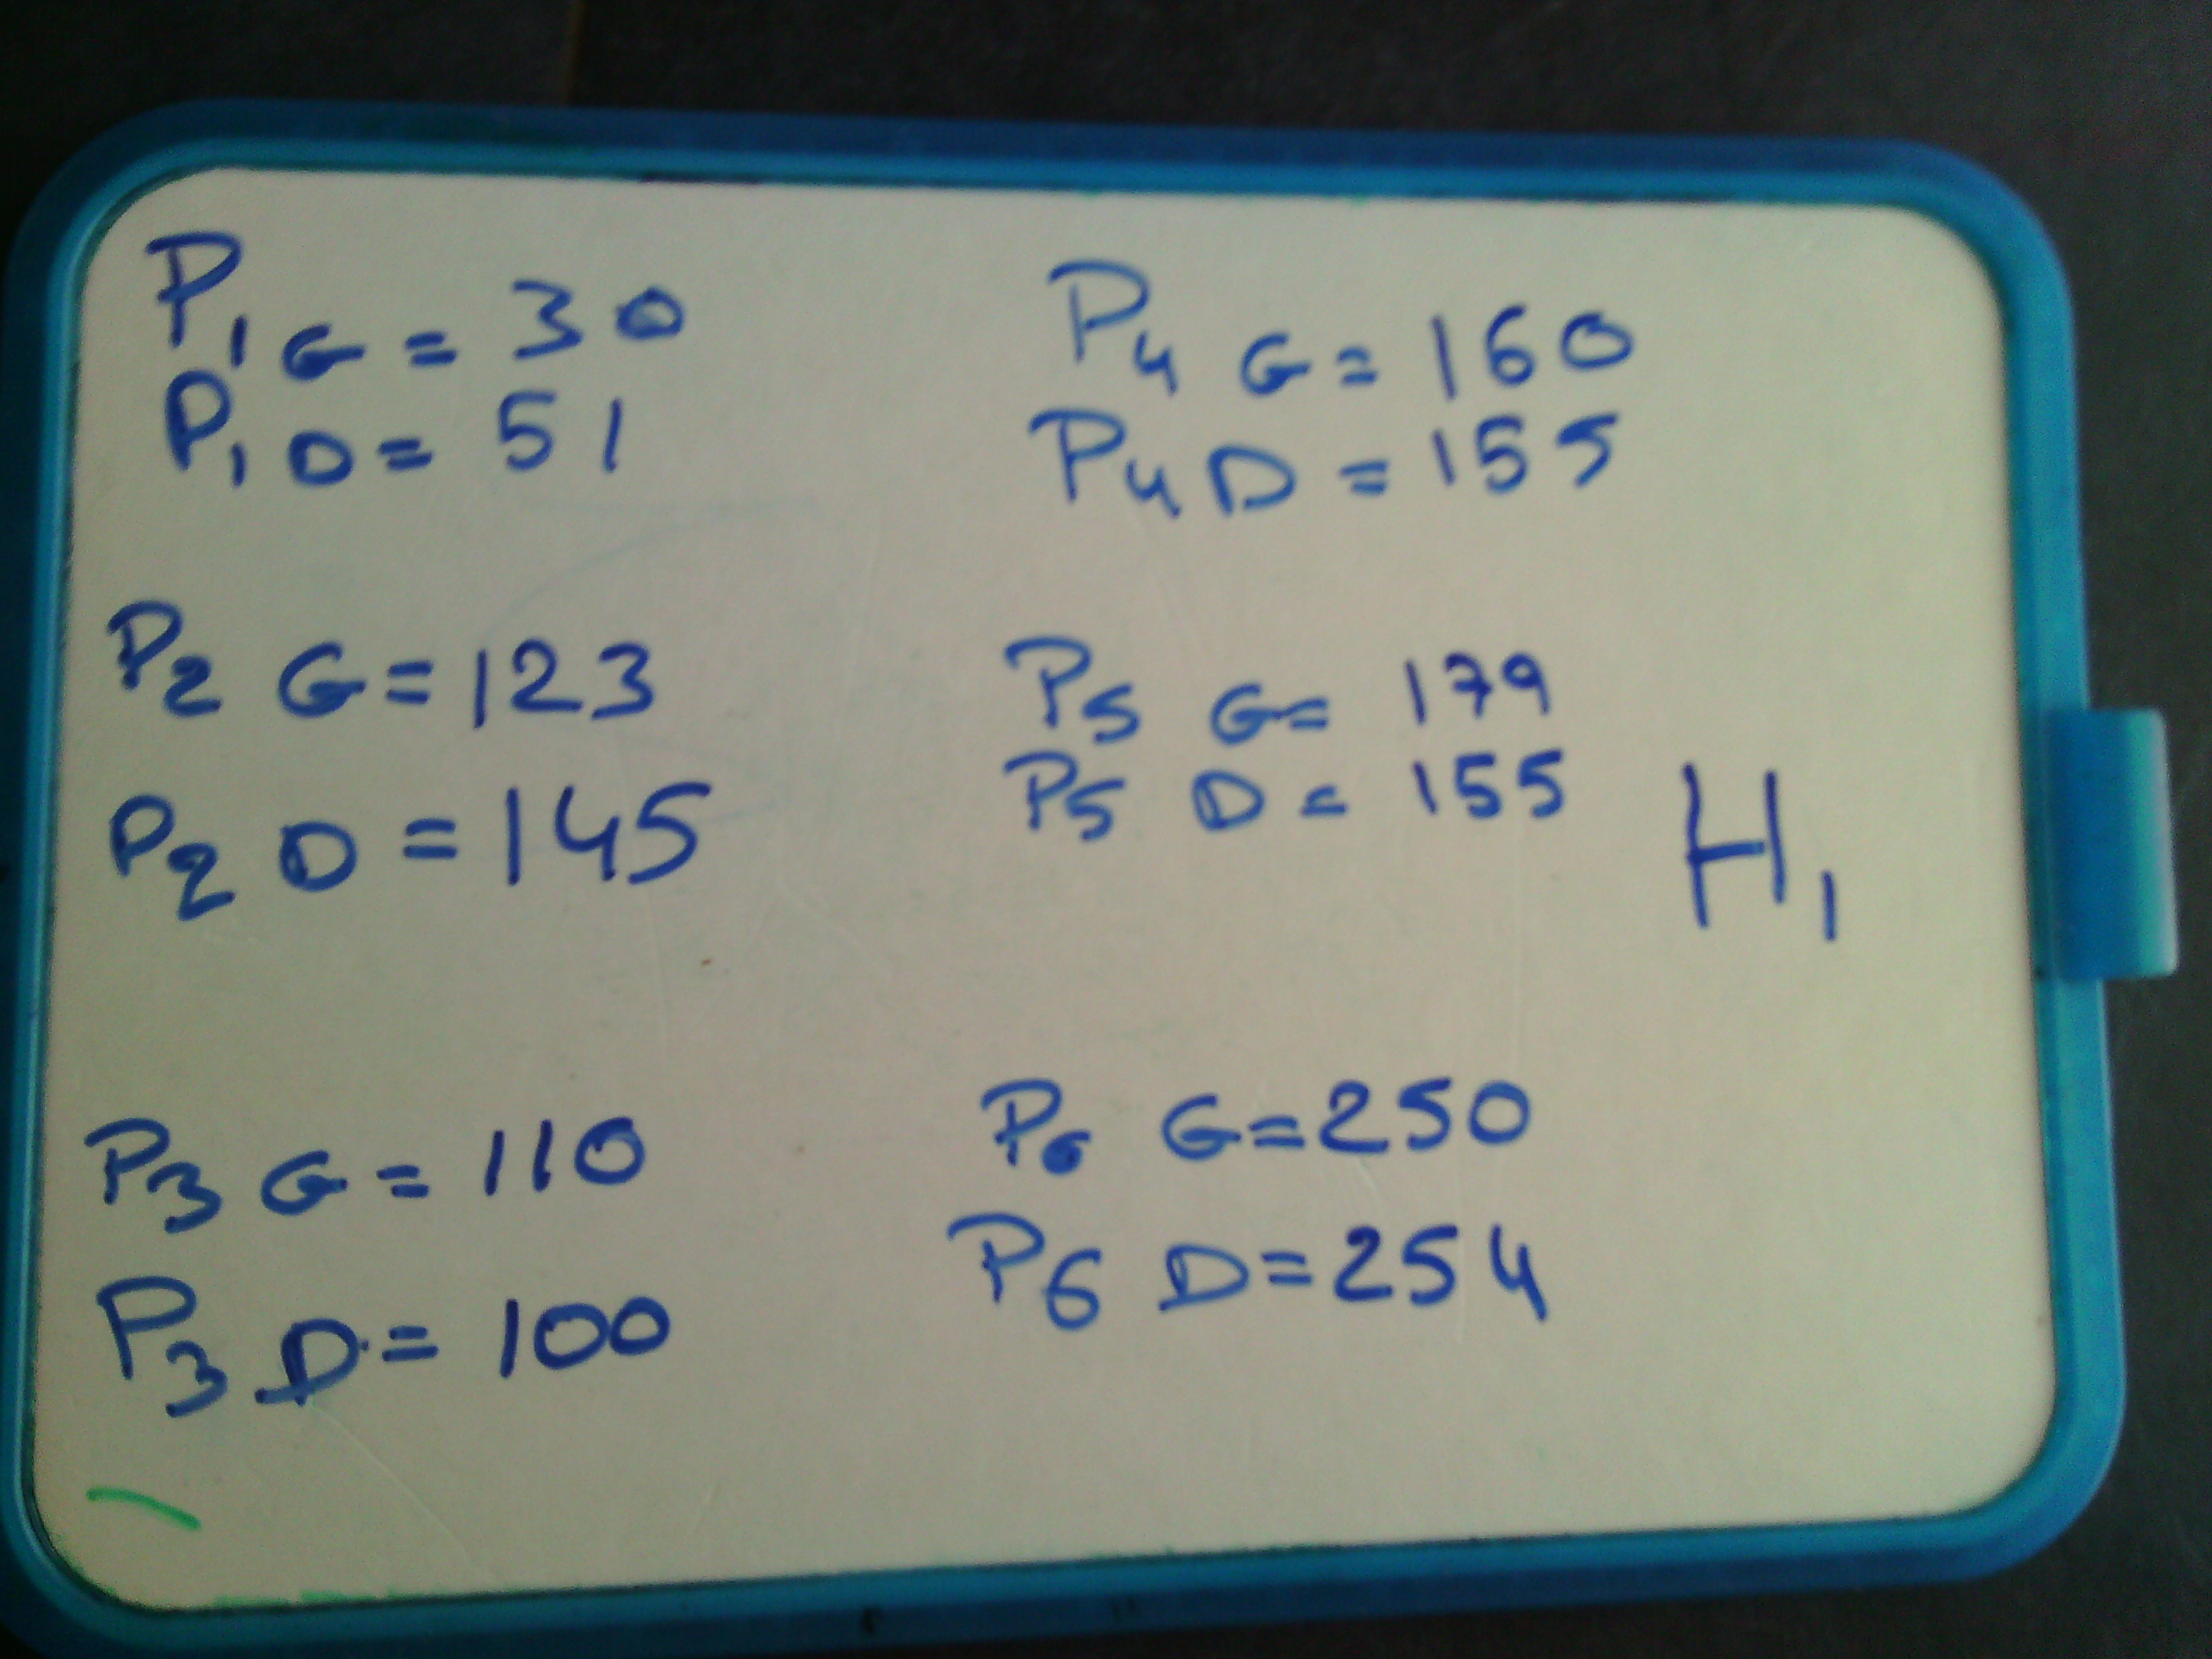 P1 G = 30
P1 D = 51
P2 G = 123
P2 D = 145
P3 G = 110
P3 D = 100
P4 G = 160
P4 D = 155
P5 G = 179
P5 D = 155
H1
P6 G = 250
P6 D = 254